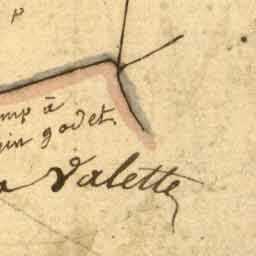 P
mp à
in godet
a Valette